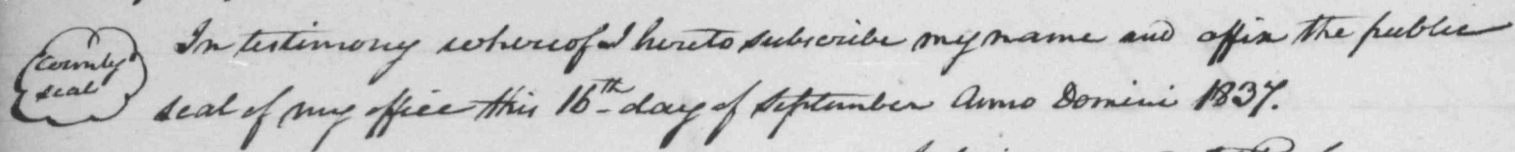 In testimony whereof I hereto subscribe my name and affix the public
county
seal
seal of my office this 16th day of September Anno Domini 1837.